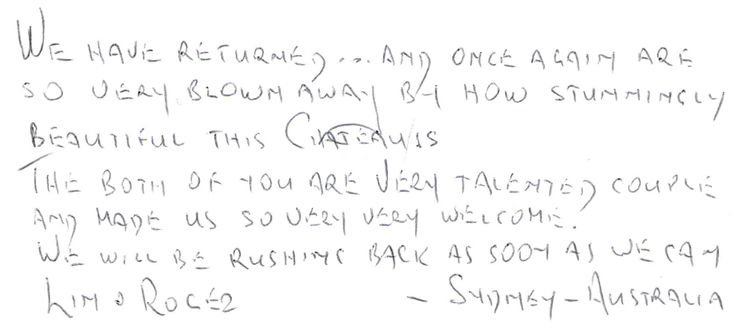 WE HAVE RETURNED... AND ONCE AGAIN ARE
SO VERY BLOWN AWAY BY HOW STUNNINGLY
BEAUTIFUL THIS CHATEAU IS
THE BOTH OF YOU ARE VERY TALENTED COUPLE
AND MADE US SO VERY VERY WELCOME.
WE WILL BE RUSHING BACK AS SOON AS WE CAN
LIN & ROGER - SYDNEY - AUSTRALIA